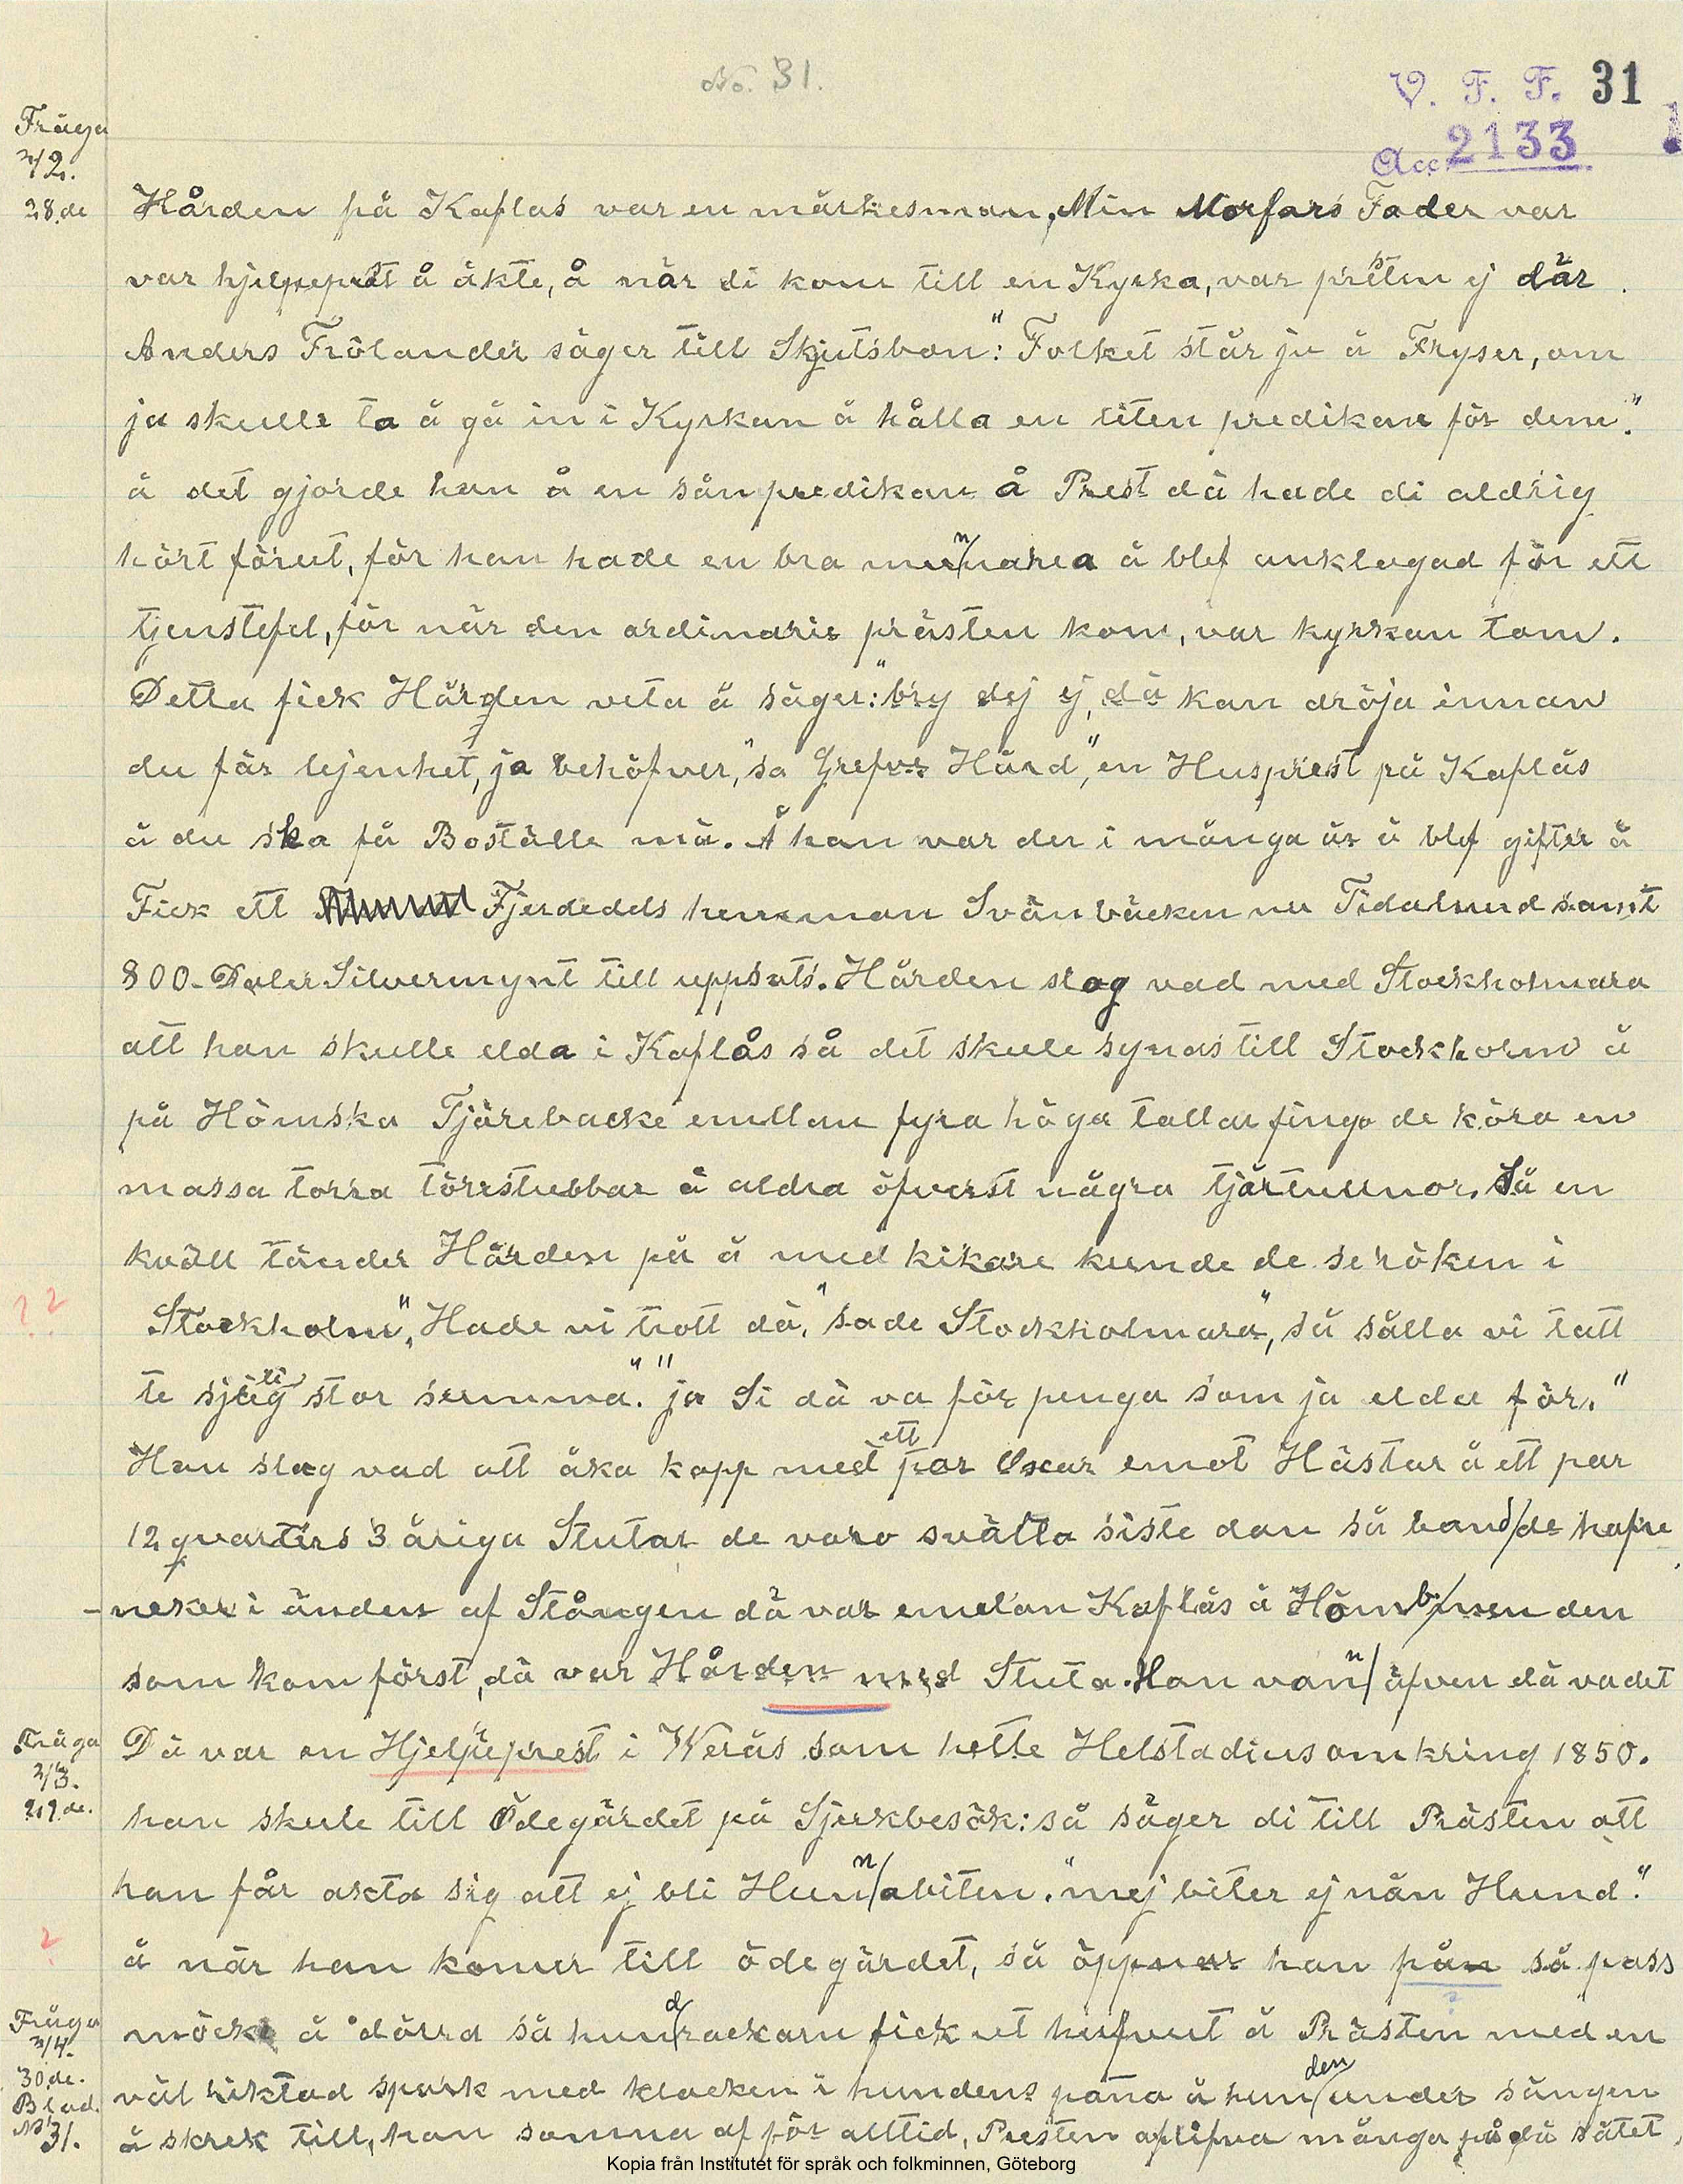 No. 31.
V. F. F. 31
Acc 2133
Fråga
2/2.
28.de
Hården på Kaflas var en märkesman, Min Morfars Fader var
var hjelpeprest å åkte, å när di kom till en Kyrka, var prästen ej där.
Anders Frölander säger till Skjutsbon: "Folket står ju å Fryser, om
ja skulle ta å gå in i Kyrkan å hålla en liten predikan för dem."
å det gjorde han å en sån predikan å Prest dä hade di aldrig
hört förut, för han hade en bra å blef anklagad för ett
tjenstefel, för när den ordinarie prästen kom, var kyrkan tom.
Detta fick Hården veta å säger: "bry dej ej, dä kan dröja innan
du får lejenhet, ja behöfver," sa Grefve Hård", en Husprest på Kaflås
å du ska få Boställe mä. Å han var der i många år å blef gifter å
Fick ett Fjerdedels hemman Svänbäcken nu Tidalund samt
800 Daler Silvermynt till uppsats. Hården slog vad med Stockholmara
att han skulle elda i Kaflås så det skule synas till Stockholm å
på Hömska Tjärebacke emellan fyra höga tallar fingo de köra en
massa torra törrstubbar å aldra öfverst några tjärtunnor. Så en
kväll tänder Hården på å med kikare kunde de se röken i
? ?
Stockholm", Hade vi trott dä," sade Stockholmara", så sålla vi tatt
te stor summa." "ja Si dä va för penga som ja elda för."
Han slog vad att åka kapp med ett par Oxar emot Hästar å ett par
12 qvarters 3 åriga Stutar de voro svälta siste dan så band de hafre
-neker i änden af Stången dä var emelan Kaflås å Hömb, men den
som kom först, dä var Hården med Stuta. Han vann äfven dä vadet
Fråga
2/3.
29.de.
Dä var en Hjelpeprest i Werås som hette Helstadius omkring 1850.
han skule till Ödegärdet på Sjukbesök: så säger di till Prästen att
han får akta sig att ej bli Hunnabiten. "mej biter ej nån Hund."
?
å när han komer till ödegärdet, så öppnar han på så pass
Fråga
2/4.
30.de.
Blad.
No 31.
möcke å dörra så hundrackarn fick ut hufvut å Prästen med en
väl riktad spark med klacken i hundens pana å hunden under sängen
å skrek till, han somna af för alltid, Presten aflifva många på dä sätet,
Kopia från Institutet för språk och folkminnen, Göteborg